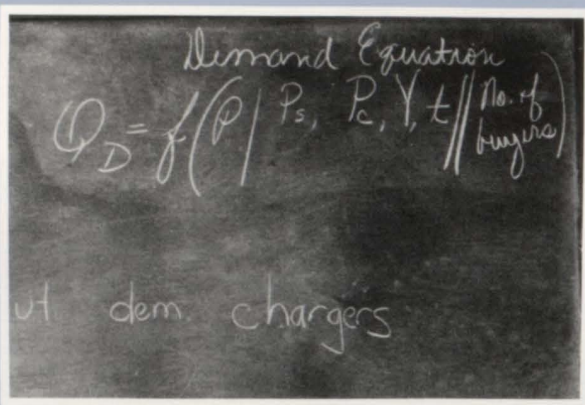 Demand Equation
Q_D = f(P | P_s, P_c, Y, t || No. of
buyers)
ut dem. chargers